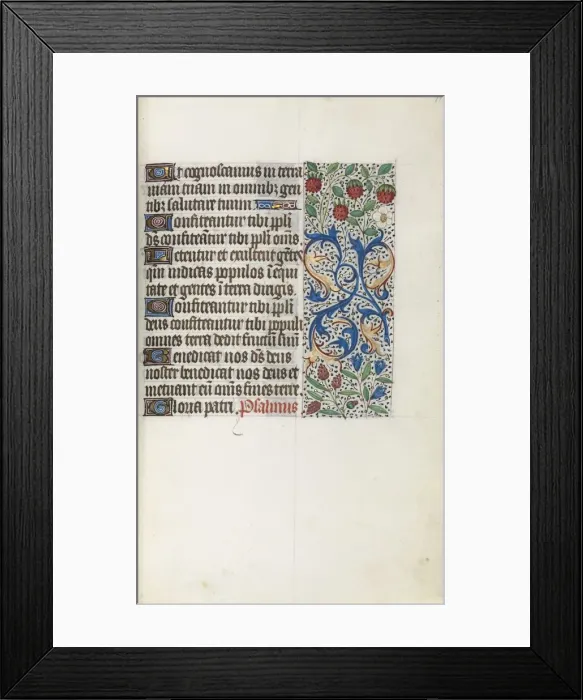 Ut cognoscamus in terra
viam tuam in omnibz gen
tibz salutare tuum.
Confiteantur tibi ppli
ds confiteātur tibi ppli om̄s
Letentur et exultent gētes
qm̄ iudicas populos ī equi
tate et gentes ī terra dirigis.
Confiteantur tibi ppli
deus confiteantur tibi populi
omnes terra dedit fructū suū
Benedicat nos ds̄ deus
noster benedicat nos deus et
metuant eū om̄s fines terre.
Gloria patri. Psalmus